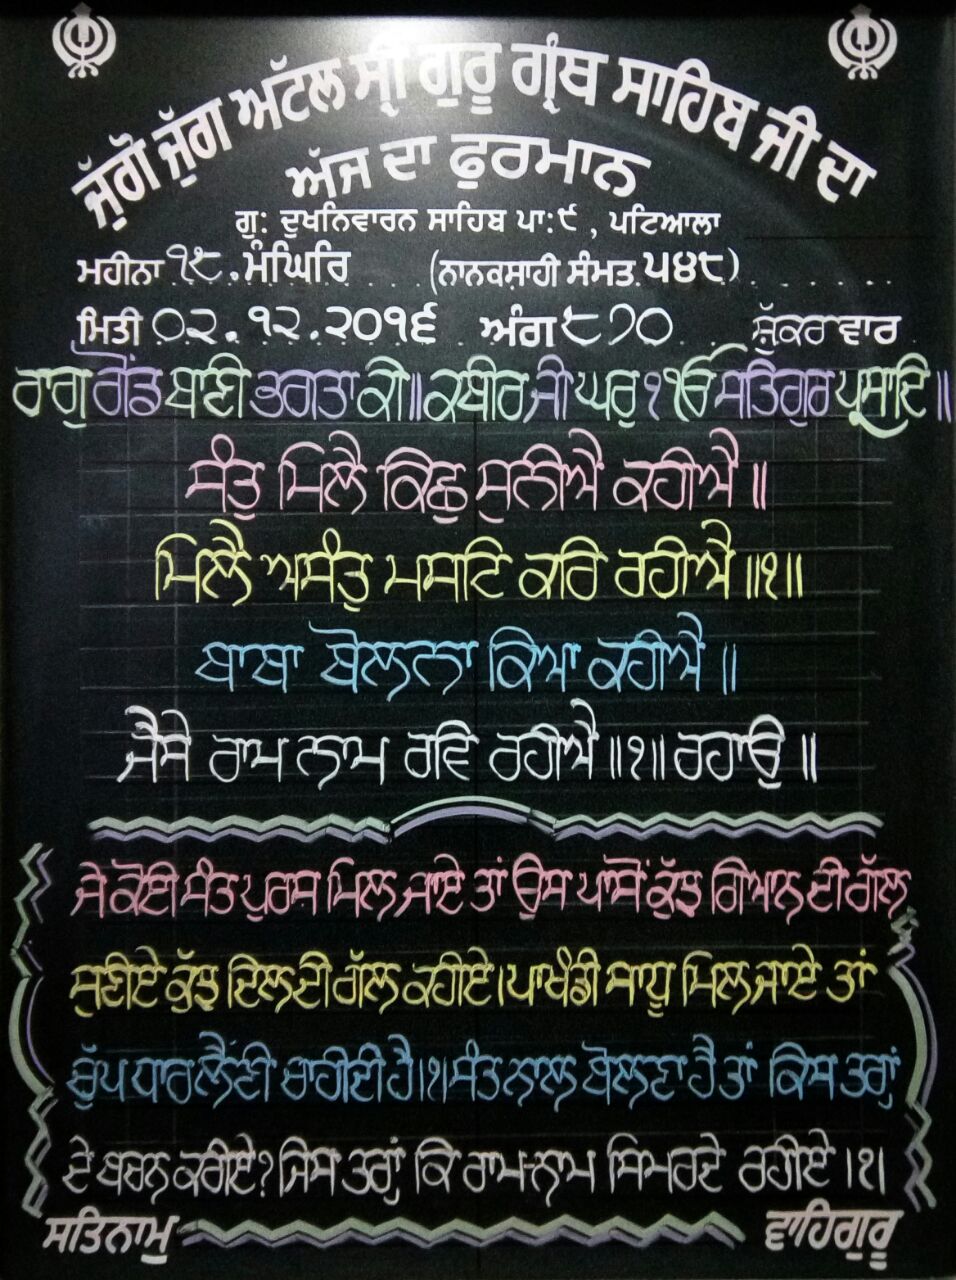 ਜੁੱਗੋ ਜੁੱਗ ਅੱਟਲ ਸ੍ਰੀ ਗੁਰੂ ਗ੍ਰੰਥ ਸਾਹਿਬ ਜੀ ਦਾ
ਅੱਜ ਦਾ ਫੁਰਮਾਨ
ਗੁ: ਦੁਖਨਿਵਾਰਨ ਸਾਹਿਬ ਪਾ:੯, ਪਟਿਆਲਾ
ਮਹੀਨਾ ੧੮. ਮੰਘਿਰਿ (ਨਾਨਕਸ਼ਾਹੀ ਸੰਮਤ ੫੪੮)
ਮਿਤੀ ੦੨.੧੨.੨੦੧੬ ਅੰਗ ੮੭੦ ਸ਼ੁੱਕਰਵਾਰ
ਰਾਗੁ ਗੋਂਡ ਬਾਣੀ ਭਗਤਾ ਕੀ॥ ਕਬੀਰ ਜੀ ਘਰੁ ੧ ੴ ਸਤਿਗੁਰ ਪ੍ਰਸਾਦਿ॥
ਸੰਤੁ ਮਿਲੈ ਕਿਛੁ ਸੁਨੀਐ ਕਹੀਐ॥
ਮਿਲੈ ਅਸੰਤੁ ਮਸਟਿ ਕਰਿ ਰਹੀਐ॥੧॥
ਬਾਬਾ ਬੋਲਨਾ ਕਿਆ ਕਹੀਐ॥
ਜੈਸੇ ਰਾਮ ਨਾਮ ਰਵਿ ਰਹੀਐ॥੧॥ ਰਹਾਉ॥
ਜੇ ਕੋਈ ਸੰਤ ਪੁਰਸ਼ ਮਿਲ ਜਾਏ ਤਾਂ ਉਸ ਪਾਸੋਂ ਕੁੱਝ ਗਿਆਨ ਦੀ ਗੱਲ
ਸੁਣੀਏ ਕੁੱਝ ਦਿਲ ਦੀ ਗੱਲ ਕਹੀਏ। ਪਾਖੰਡੀ ਸਾਧੂ ਮਿਲ ਜਾਏ ਤਾਂ
ਚੁੱਪ ਧਾਰ ਲੈਣੀ ਚਾਹੀਦੀ ਹੈ।੧। ਸੰਤ ਨਾਲ ਬੋਲਣਾ ਹੈ ਤਾਂ ਕਿਸ ਤਰ੍ਹਾਂ
ਦੇ ਬਚਨ ਕਰੀਏ? ਜਿਸ ਤਰ੍ਹਾਂ ਕਿ ਰਾਮ-ਨਾਮ ਸਿਮਰਦੇ ਰਹੀਏ।੧।
ਸਤਿਨਾਮੁ ਵਾਹਿਗੁਰੂ